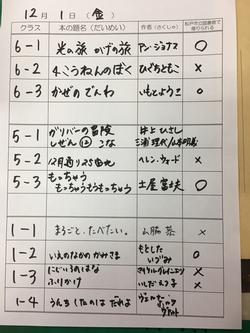 12月 1日 (金)
クラス 本の題名(だいめい) 作者(さくしゃ) 松戸市立図書館で借りられる
6-1 光の旅 かげの旅 アン・ジョナス ○
6-2 4こうねんのぼく ひぐちともこ ×
6-3 かぜのでんわ いもとようこ ○
5-1 ガリバーの冒険 井上ひさし ○
しぜん 三浦 ×
5-2 12月通り25番地 ヘレン・ウォード ×
5-3 もっちゅう 土屋富士夫 ○
もっちゅうもうもっちゅう
1-1 まるごと、たべたい。 山脇 恭 ×
1-2 いえのなかのかみさま もとした いづみ ○
1-3 にじいろのはな マイケル・グレイニエツ ×
ふりかけ ×
1-4 うんちしたのはだれよ ○